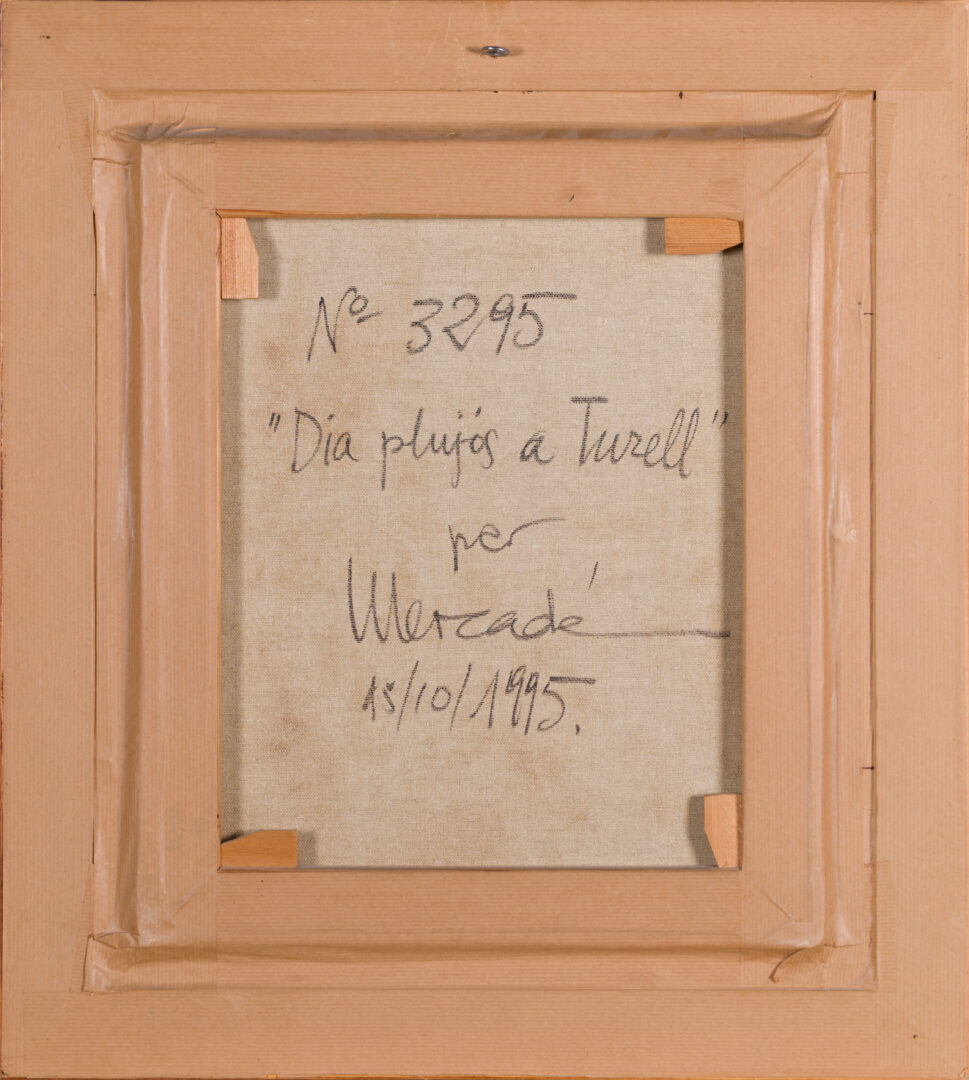 Nº 3295
"Dia plujós a Turell"
per
Mercadé
15/10/1995.